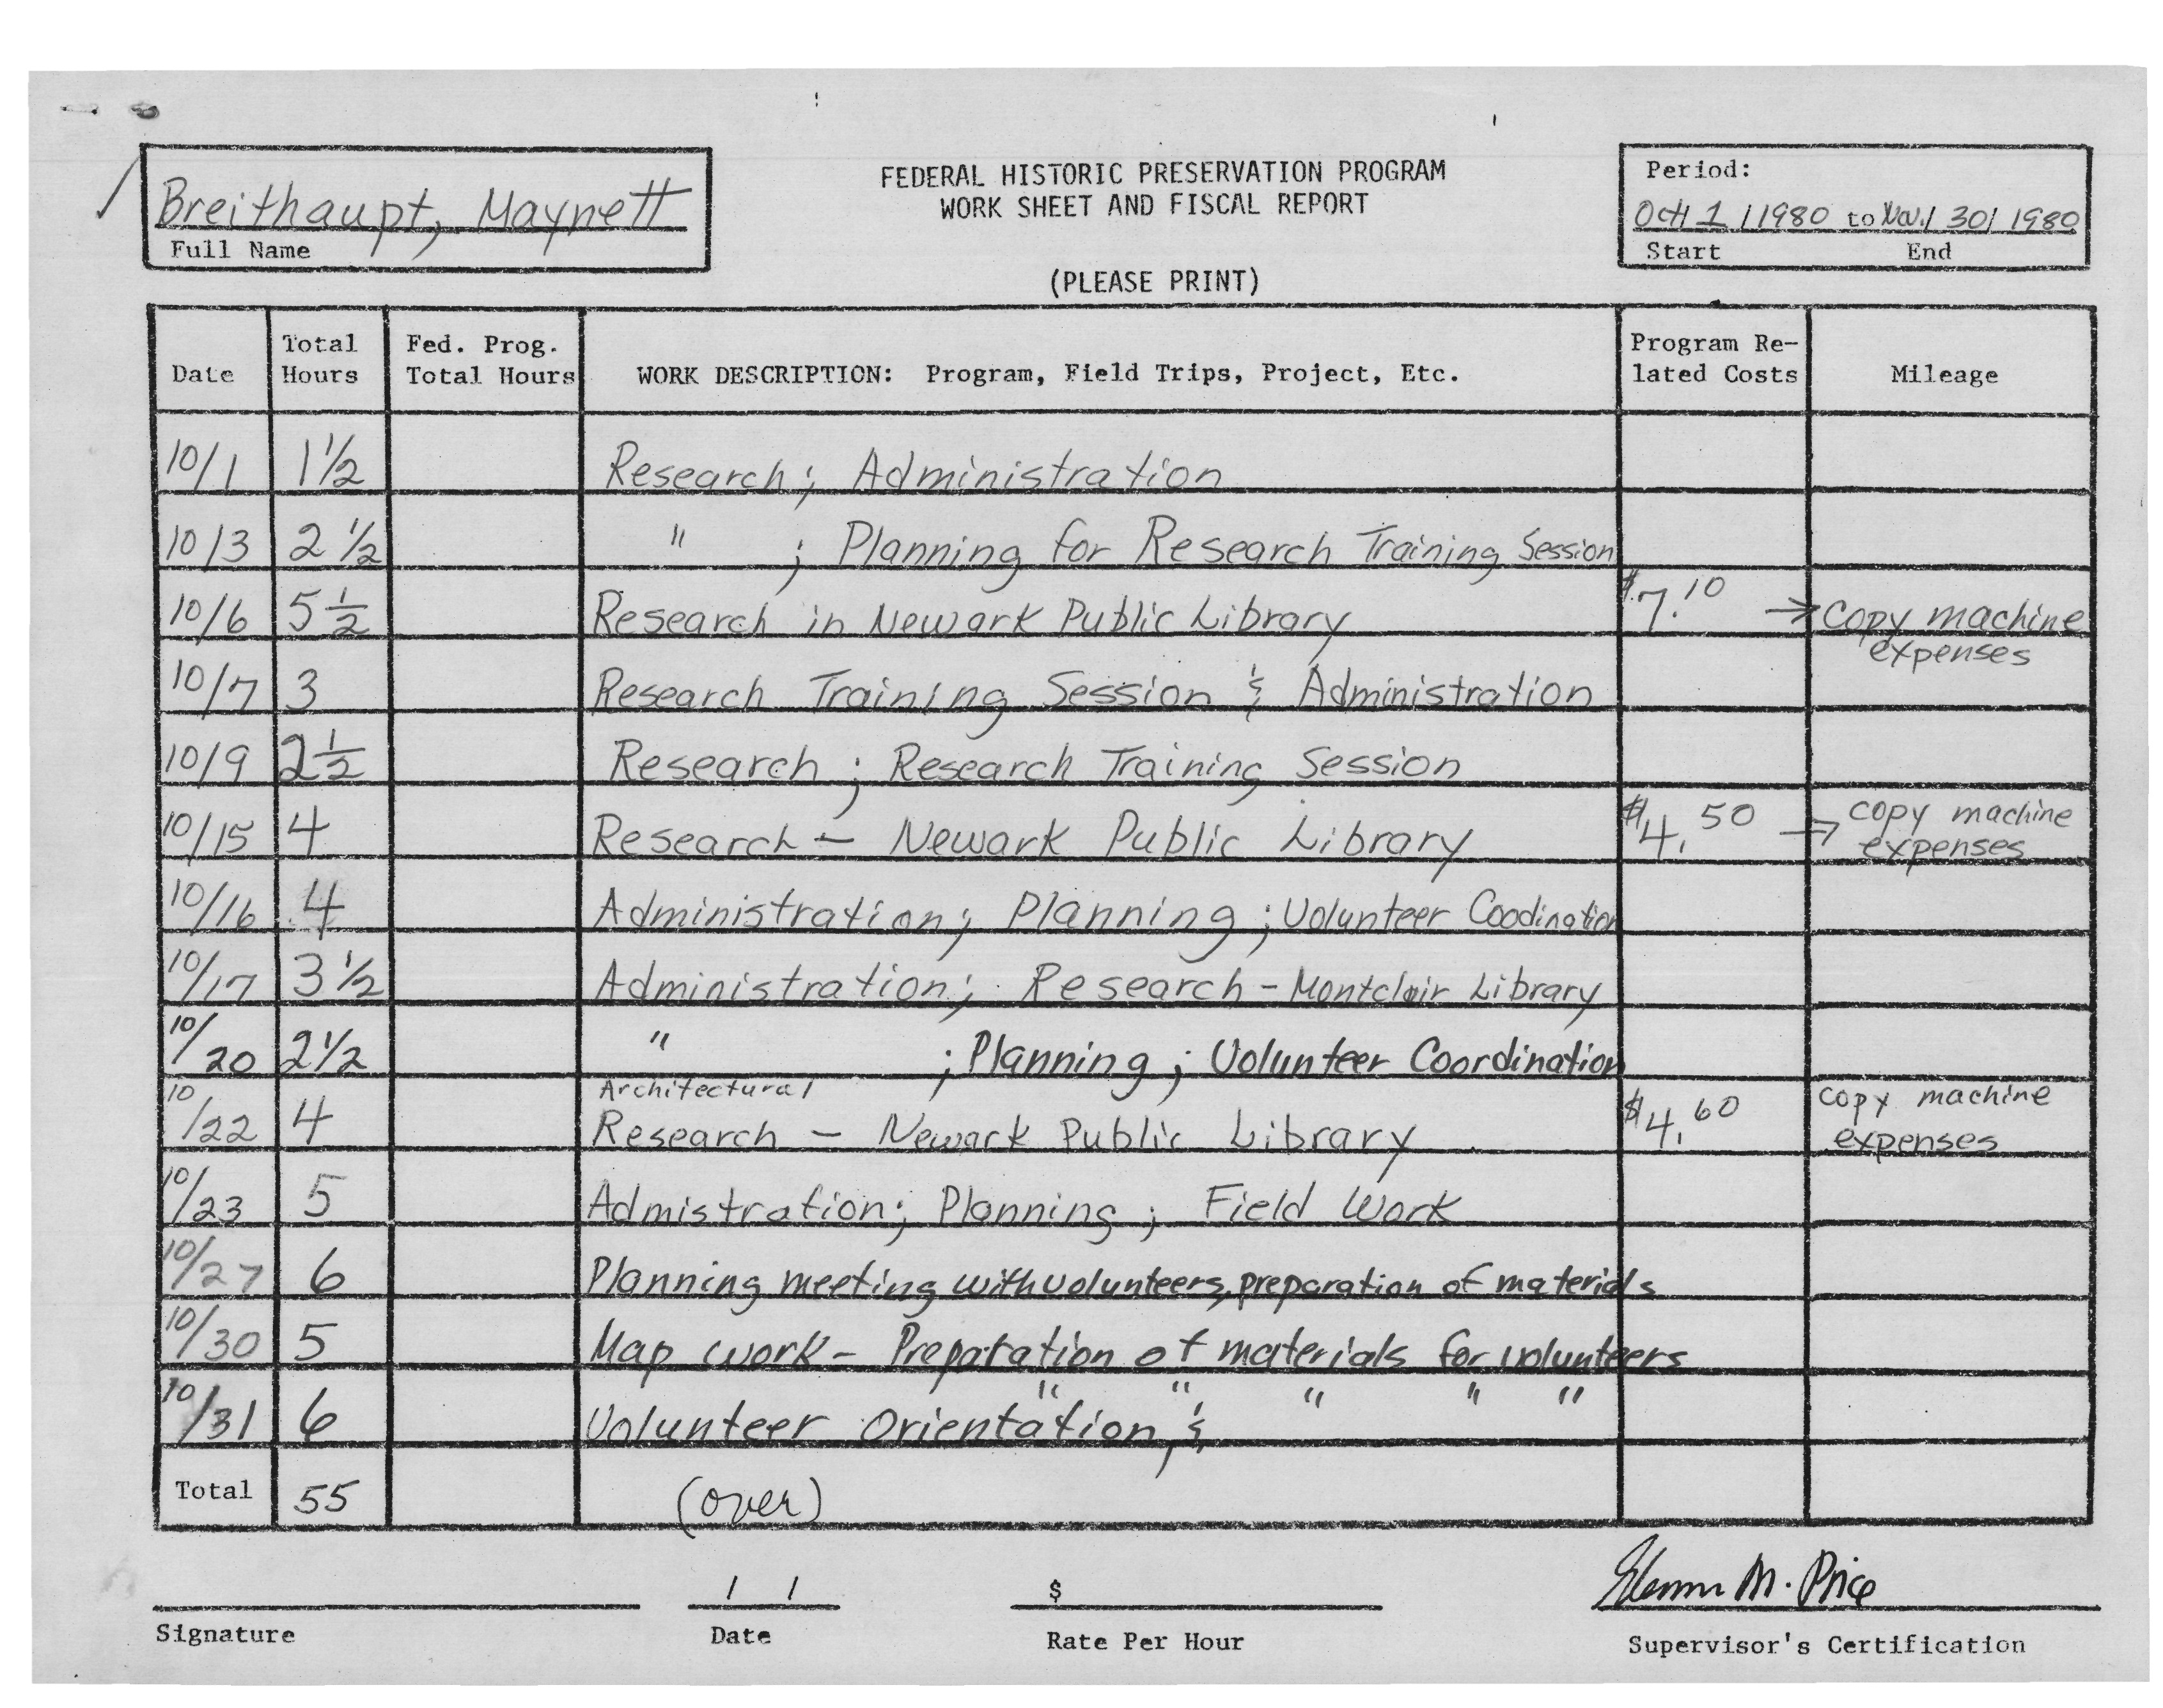 Breithaupt, Maynett
Full Name
FEDERAL HISTORIC PRESERVATION PROGRAM
WORK SHEET AND FISCAL REPORT
(PLEASE PRINT)
Period:
Oct/ 1 / 1980 to Nov./ 30/ 1980
Start End
Date Total Hours Fed. Prog. Total Hours WORK DESCRIPTION: Program, Field Trips, Project, Etc. Program Related Costs Mileage
10/1 1 1/2 Research; Administration
10/3 2 1/2 " ; Planning for Research Training Session
10/6 5 1/2 Research in Newark Public Library $7.10 → Copy machine expenses
10/7 3 Research Training Session & Administration
10/9 2 1/2 Research; Research Training Session
10/15 4 Research — Newark Public Library $4.50 → copy machine expenses
10/16 4 Administration; Planning; Volunteer Coodination
10/17 3 1/2 Administration; Research - Montclair Library
10/20 2 1/2 " ; Planning; Volunteer Coordination
10/22 4 Architectural Research — Newark Public Library $4.60 copy machine expenses
10/23 5 Admistration; Planning; Field Work
10/27 6 Planning meeting with volunteers, preparation of materials
10/30 5 Map work - Preparation of materials for volunteers
10/31 6 Volunteer Orientation, & " " " " "
Total 55 (over)
/ / $ 
Signature Date Rate Per Hour Supervisor's Certification